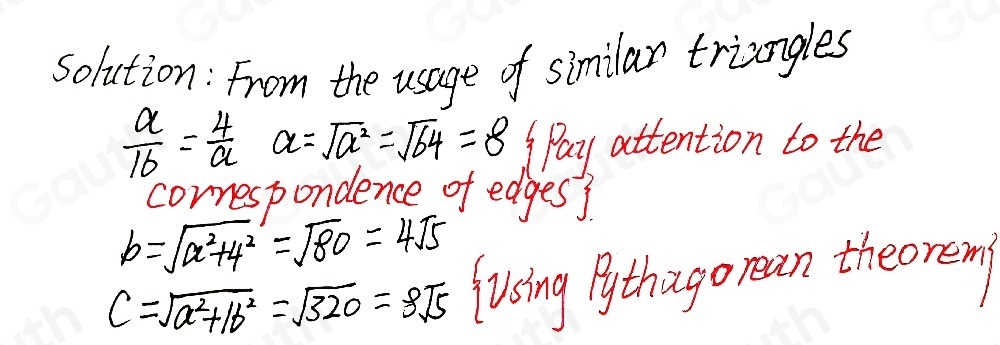 Solution: From the usage of similar triangles
a/16 = 4/a a=√a² = √64 = 8 {Pay attention to the
correspondence of edges}.
b=√a²+4² = √80 = 4√5
C=√a²+16² = √320 = 8√5 {Using Pythagorean theorem}
Gauth